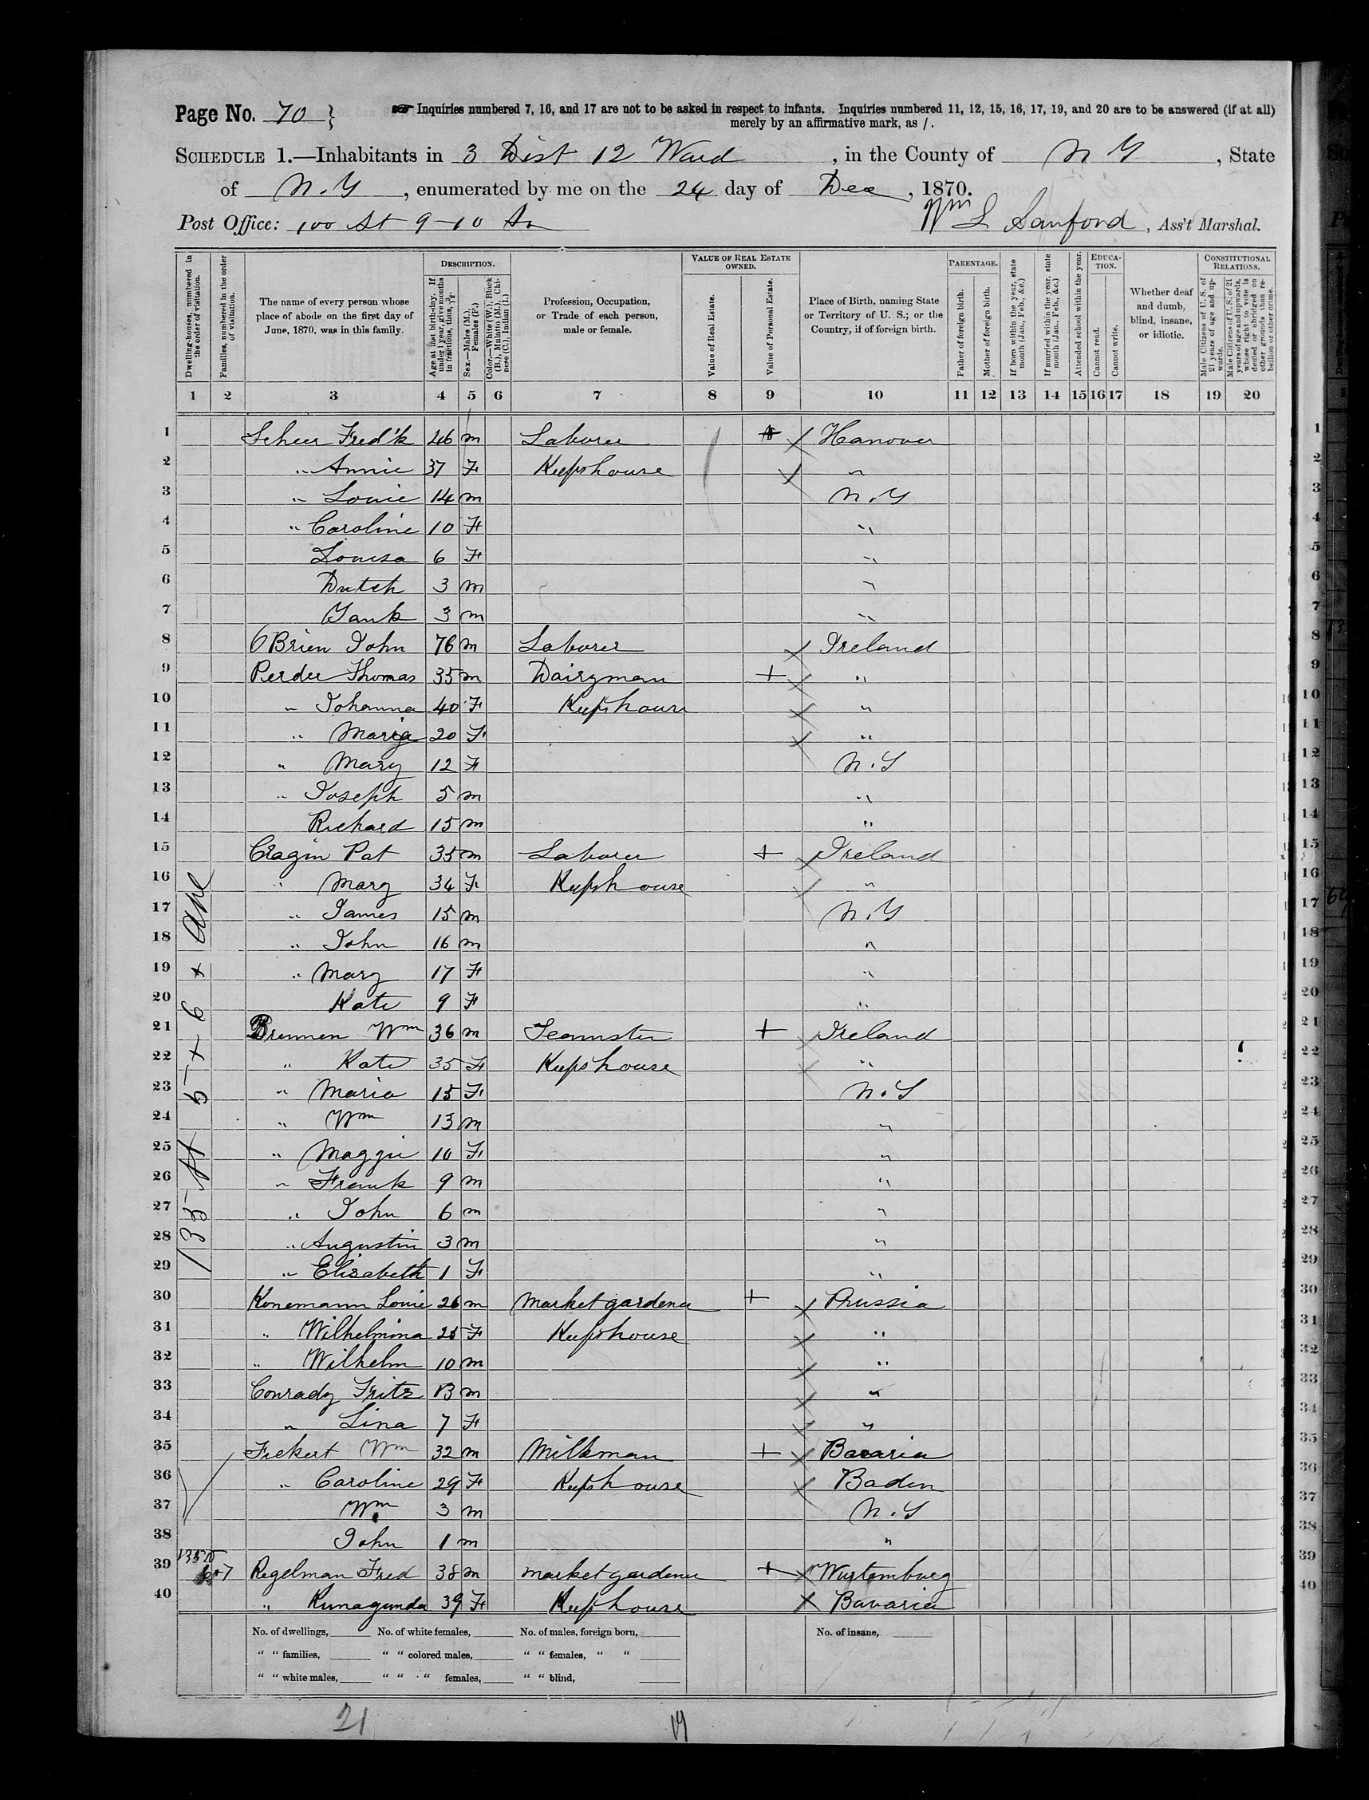 Page No. 70 } Inquiries numbered 7, 16, and 17 are not to be asked in respect to infants. Inquiries numbered 11, 12, 15, 16, 17, 19, and 20 are to be answered (if at all)
merely by an affirmative mark, as /.
SCHEDULE 1.—Inhabitants in 3 Dist 12 Ward, in the County of N Y, State
of N. Y, enumerated by me on the 24 day of Dec, 1870.
Post Office: 100 St 9-10 Av Wm L Sanford, Ass't Marshal.
Dwelling-houses, numbered in the order of visitation.
Families, numbered in the order of visitation.
The name of every person whose place of abode on the first day of June, 1870, was in this family.
DESCRIPTION.
Age at last birth-day. If under 1 year, give months in fractions, thus, 3/12.
Sex.—Males (M.), Females (F.)
Color.—White (W.), Black (B.), Mulatto (M.), Chinese (C.), Indian (I.)
Profession, Occupation, or Trade of each person, male or female.
VALUE OF REAL ESTATE OWNED.
Value of Real Estate.
Value of Personal Estate.
Place of Birth, naming State or Territory of U. S.; or the Country, if of foreign birth.
PARENTAGE.
Father of foreign birth.
Mother of foreign birth.
If born within the year, state month (Jan., Feb., &c.)
If married within the year, state month (Jan., Feb., &c.)
Attended school within the year.
EDUCATION.
Cannot read.
Cannot write.
Whether deaf and dumb, blind, insane, or idiotic.
CONSTITUTIONAL RELATIONS.
Male Citizens of U. S. of 21 years of age and upwards.
Male Citizens of U. S. of 21 years of age and upwards, whose right to vote is denied or abridged on other grounds than rebellion or other crime.
1 2 3 4 5 6 7 8 9 10 11 12 13 14 15 16 17 18 19 20
1 Scheer Fred'k 46 m Laborer Hanover
2 " Annie 37 F Keeps house "
3 " Louie 14 m N.Y
4 " Caroline 10 F "
5 Louisa 6 F "
6 Dutch 3 m "
7 Yank 3 m "
8 O'Brien John 76 m Laborer Ireland
9 Perder Thomas 35 m Dairyman + "
10 " Johanna 40 F Keeps house "
11 " Maria 20 F "
12 " Mary 12 F N.Y
13 " Joseph 5 m "
14 Richard 15 m "
15 Cragin Pat 35 m Laborer + Ireland
16 " Mary 34 F Keeps house "
17 " James 15 m N.Y
18 " John 16 m "
19 " Mary 17 F "
20 Kate 9 F "
21 Brennen Wm 36 m Teamster + Ireland
22 " Kate 35 F Keeps house "
23 " Maria 15 F N.Y
24 " Wm 13 m "
25 " Maggie 10 F "
26 " Frank 9 m "
27 " John 6 m "
28 " Augustin 3 m "
29 " Elizabeth 1 F "
30 Konemann Louie 26 m Market gardener + Prussia
31 " Wilhelmina 25 F Keeps house "
32 " Wilhelm 10 m "
33 Conrady Fritz 13 m "
34 " Lina 7 F "
35 Fickert Wm 32 m Milkman + Bavaria
36 " Caroline 29 F Keeps house Baden
37 Wm 3 m N.Y
38 John 1 m "
39 Regelman Fred 38 m Market gardener + Wurtemburg
40 " Kunagunda 39 F Keeps house Bavaria
135 St 5 + 6 + Ave
No. of dwellings, No. of white females, No. of males, foreign born, No. of insane,
" " families, " " colored males, " " females, " "
" " white males, " " " females, " " blind,
21 19